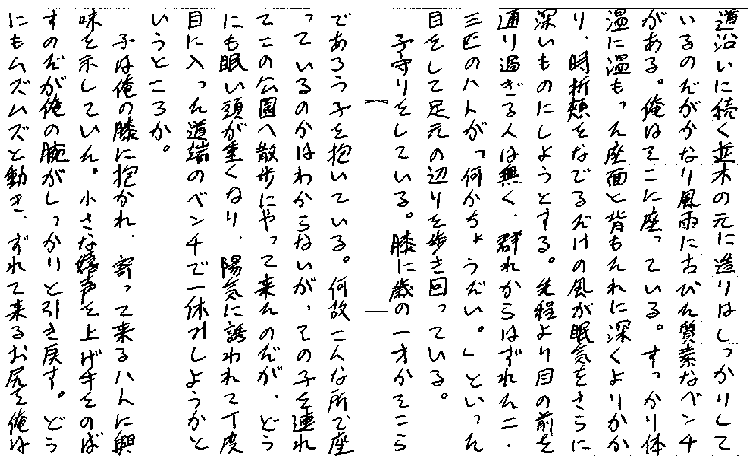 道沿いに続く並木の元に造りはしっかりして
いるのだがかなり風雨に古びた質素なベンチ
がある。俺はそこに座っている。すっかり体
温に温もった座面と背もたれに深くよりかか
り、時折頬をなでるだけの風が眠気をさらに
深いものにしようとする。先程より目の前を
通り過ぎる人は無く、群れからはずれた二・
三匹のハトが「何かちょうだい。」といった
目をして足元の辺りを歩き回っている。
子守りをしている。膝に歳の一才かそこら
であろう子を抱いている。何故こんな所で座
っているのかはわからないが、その子を連れ
てこの公園へ散歩にやって来たのだが、どう
にも眠い頭が重くなり、陽気に誘われて丁度
目に入った道端のベンチで一休みしようかと
いうところか。
子は俺の膝に抱かれ、寄って来るハトに興
味を示していた。小さな嬌声を上げ手をのば
すのだが俺の腕がしっかりと引き戻す。どう
にもムズムズと動き、ずれて来るお尻を俺は